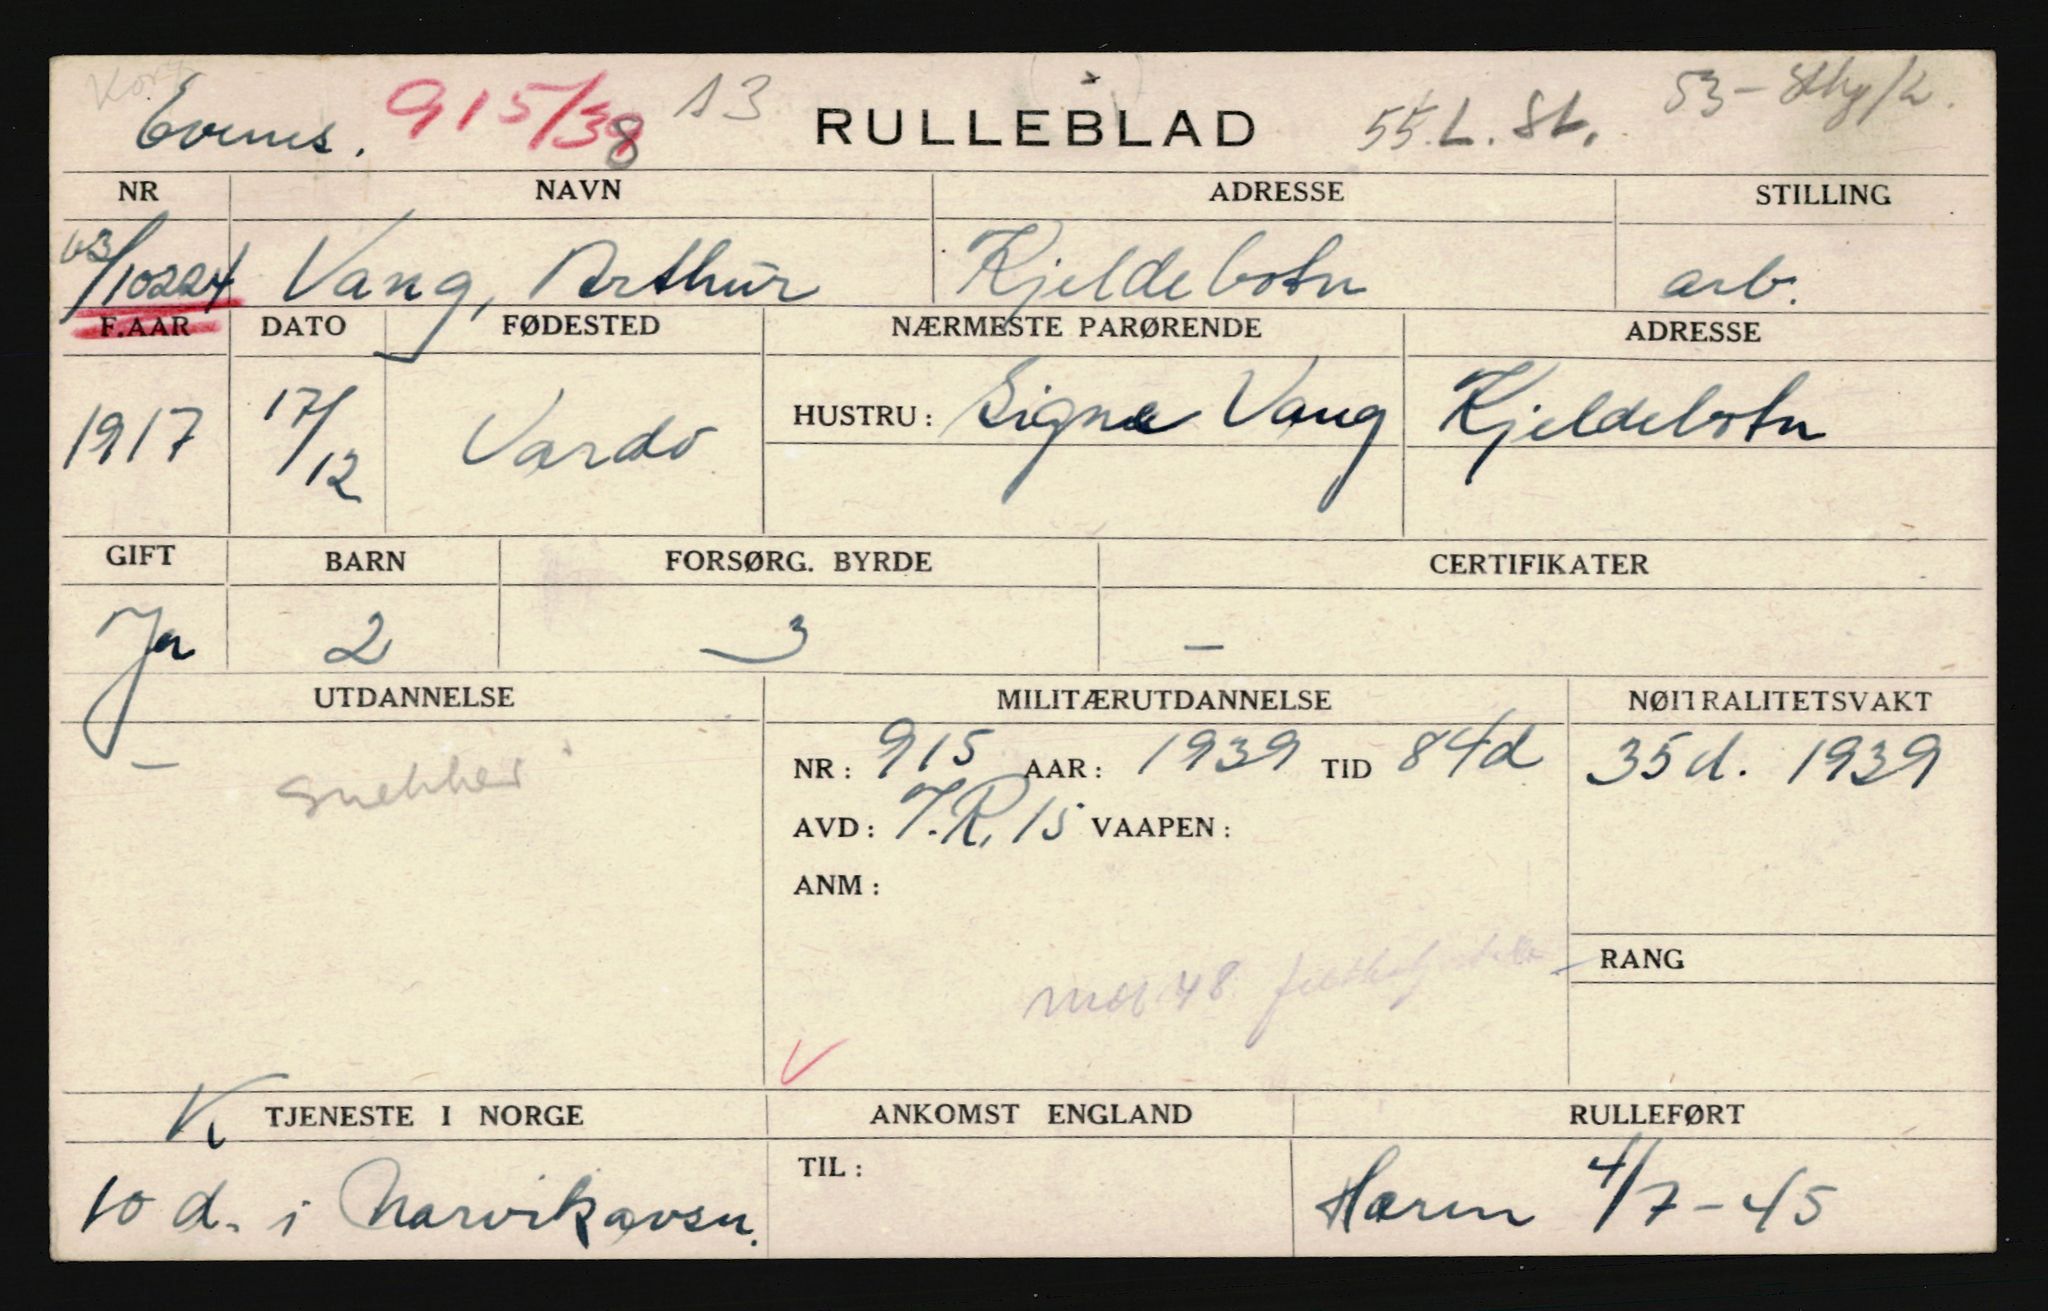 Evenes. 915/38 A3 RULLEBLAD 55. L. St. 53 -
NR NAVN ADRESSE STILLING
63/10224 Vang, Arthur Kjeldebotn arb.
F.AAR DATO FØDESTED NÆRMESTE PARØRENDE ADRESSE
1917 17/12 Vardö HUSTRU: Signe Vang Kjeldebotn
GIFT BARN FORSØRG. BYRDE CERTIFIKATER
Ja 2 3 —
UTDANNELSE MILITÆRUTDANNELSE NØITRALITETSVAKT
— NR: 915 AAR: 1939 TID 84d 35d. 1939
snekker
AVD: I.R. 15 VAAPEN:
ANM:
RANG
mob 48.
V
K TJENESTE I NORGE ANKOMST ENGLAND RULLEFØRT
10 d. i Narvikavsn. TIL: Hæren 4/7-45